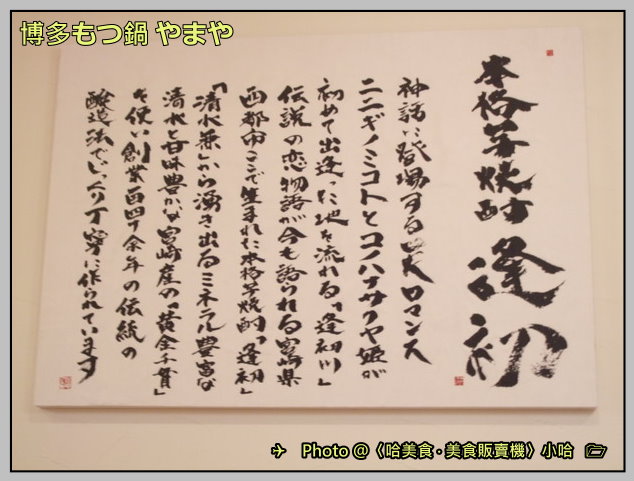 博多もつ鍋 やまや
本格芋焼酎 逢初
神話に登場する大ロマンス
ニニギノミコトとコノハナサクヤ姫が
初めて出逢った地を流れる「逢初川」
伝説の恋物語が今も語られる宮崎県
西都市ここで生まれた本格芋焼酎「逢初」
「清水兼」から湧き出るミネラル豊富な
清水と甘味豊かな宮崎産の「黄金千貫」
を使い創業百四十余年の伝統の
醸造法でじっくり丁寧に作られています
Photo @〈哈美食·美食販賣機〉小哈